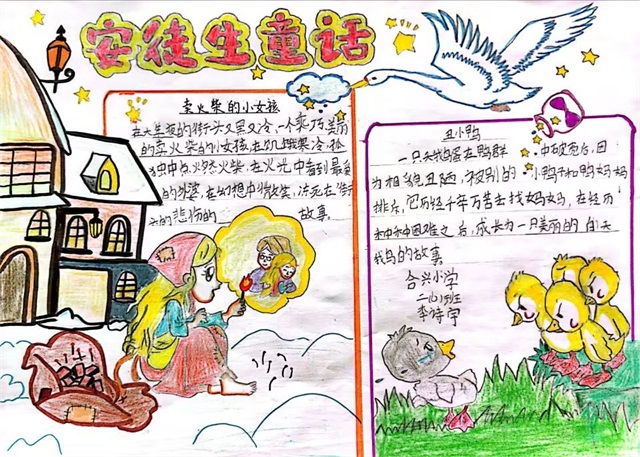 安徒生童话
卖火柴的小女孩
在大年夜的街头又黑又冷,一个乖巧美丽
的卖火柴的小女孩在饥饿寒冷孤
独中 火柴,在火光中看到最
的外婆,在幻想中微笑,冻死在街
头的悲伤的 故事。
丑小鸭
一只天鹅蛋在鸭群 中破壳后,因
为相貌丑陋,被别的 小鸭和鸭妈妈
排斥,它历经千辛万苦去找妈妈,在经历
种种困难之后,成长为一只美丽的白天
鹅 的故事
合兴小学
班
李诗宇